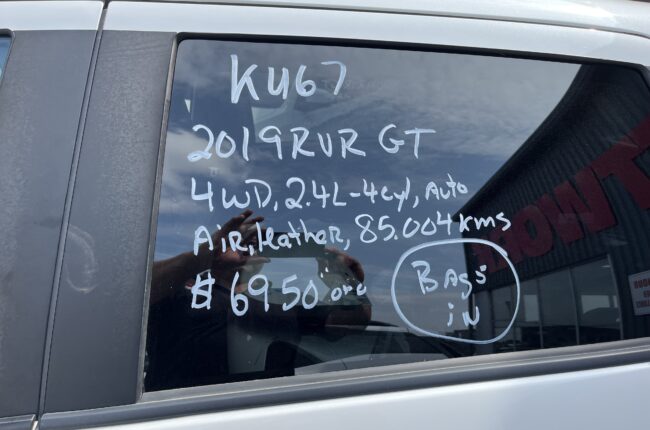 KU67
2019 RVR GT
4WD, 2.4L-4cyl, Auto
Air, leather, 85.004 kms
$6950 " oro
Bags
in